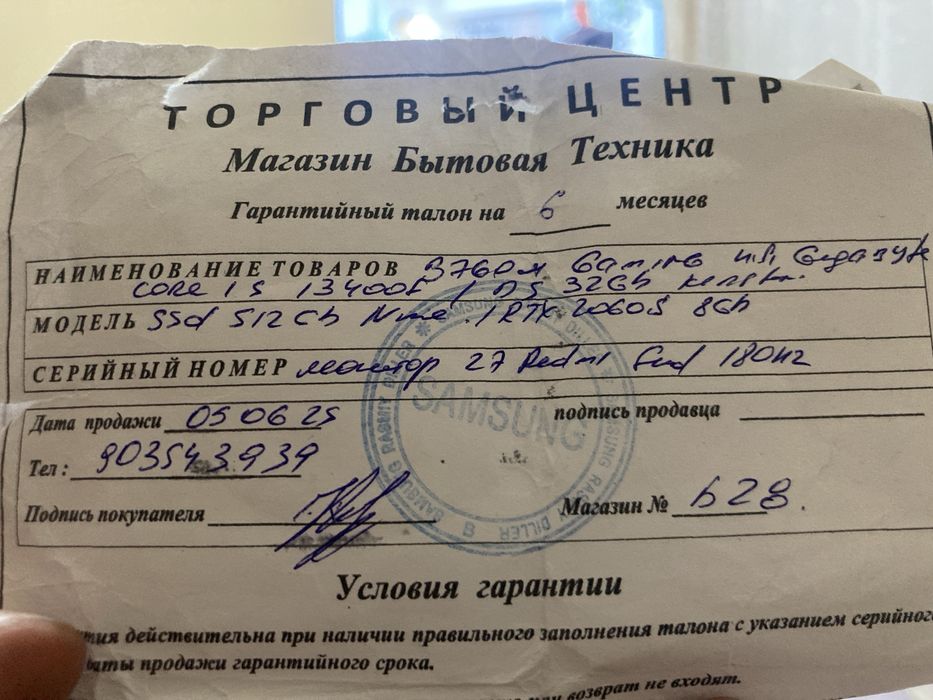 ТОРГОВЫЙ ЦЕНТР
Магазин Бытовая Техника
Гарантийный талон на 6 месяцев
НАИМЕНОВАНИЕ ТОВАРОВ B760M Gaming wifi Gigabyte
CORE i5 13400F / D5 32Gb
МОДЕЛЬ SSd 512Gb Nvme / RTX 2060S 8Gb
СЕРИЙНЫЙ НОМЕР монитор 27 Redmi 180Hz
Дата продажи 05 06 25
подпись продавца
Тел: 903543939
Подпись покупателя
Магазин № b28.
SAMSUNG
Условия гарантии
тия действительна при наличии правильного заполнения талона с указанием серийного
даты продажи гарантийного срока.
или возврат не входят.